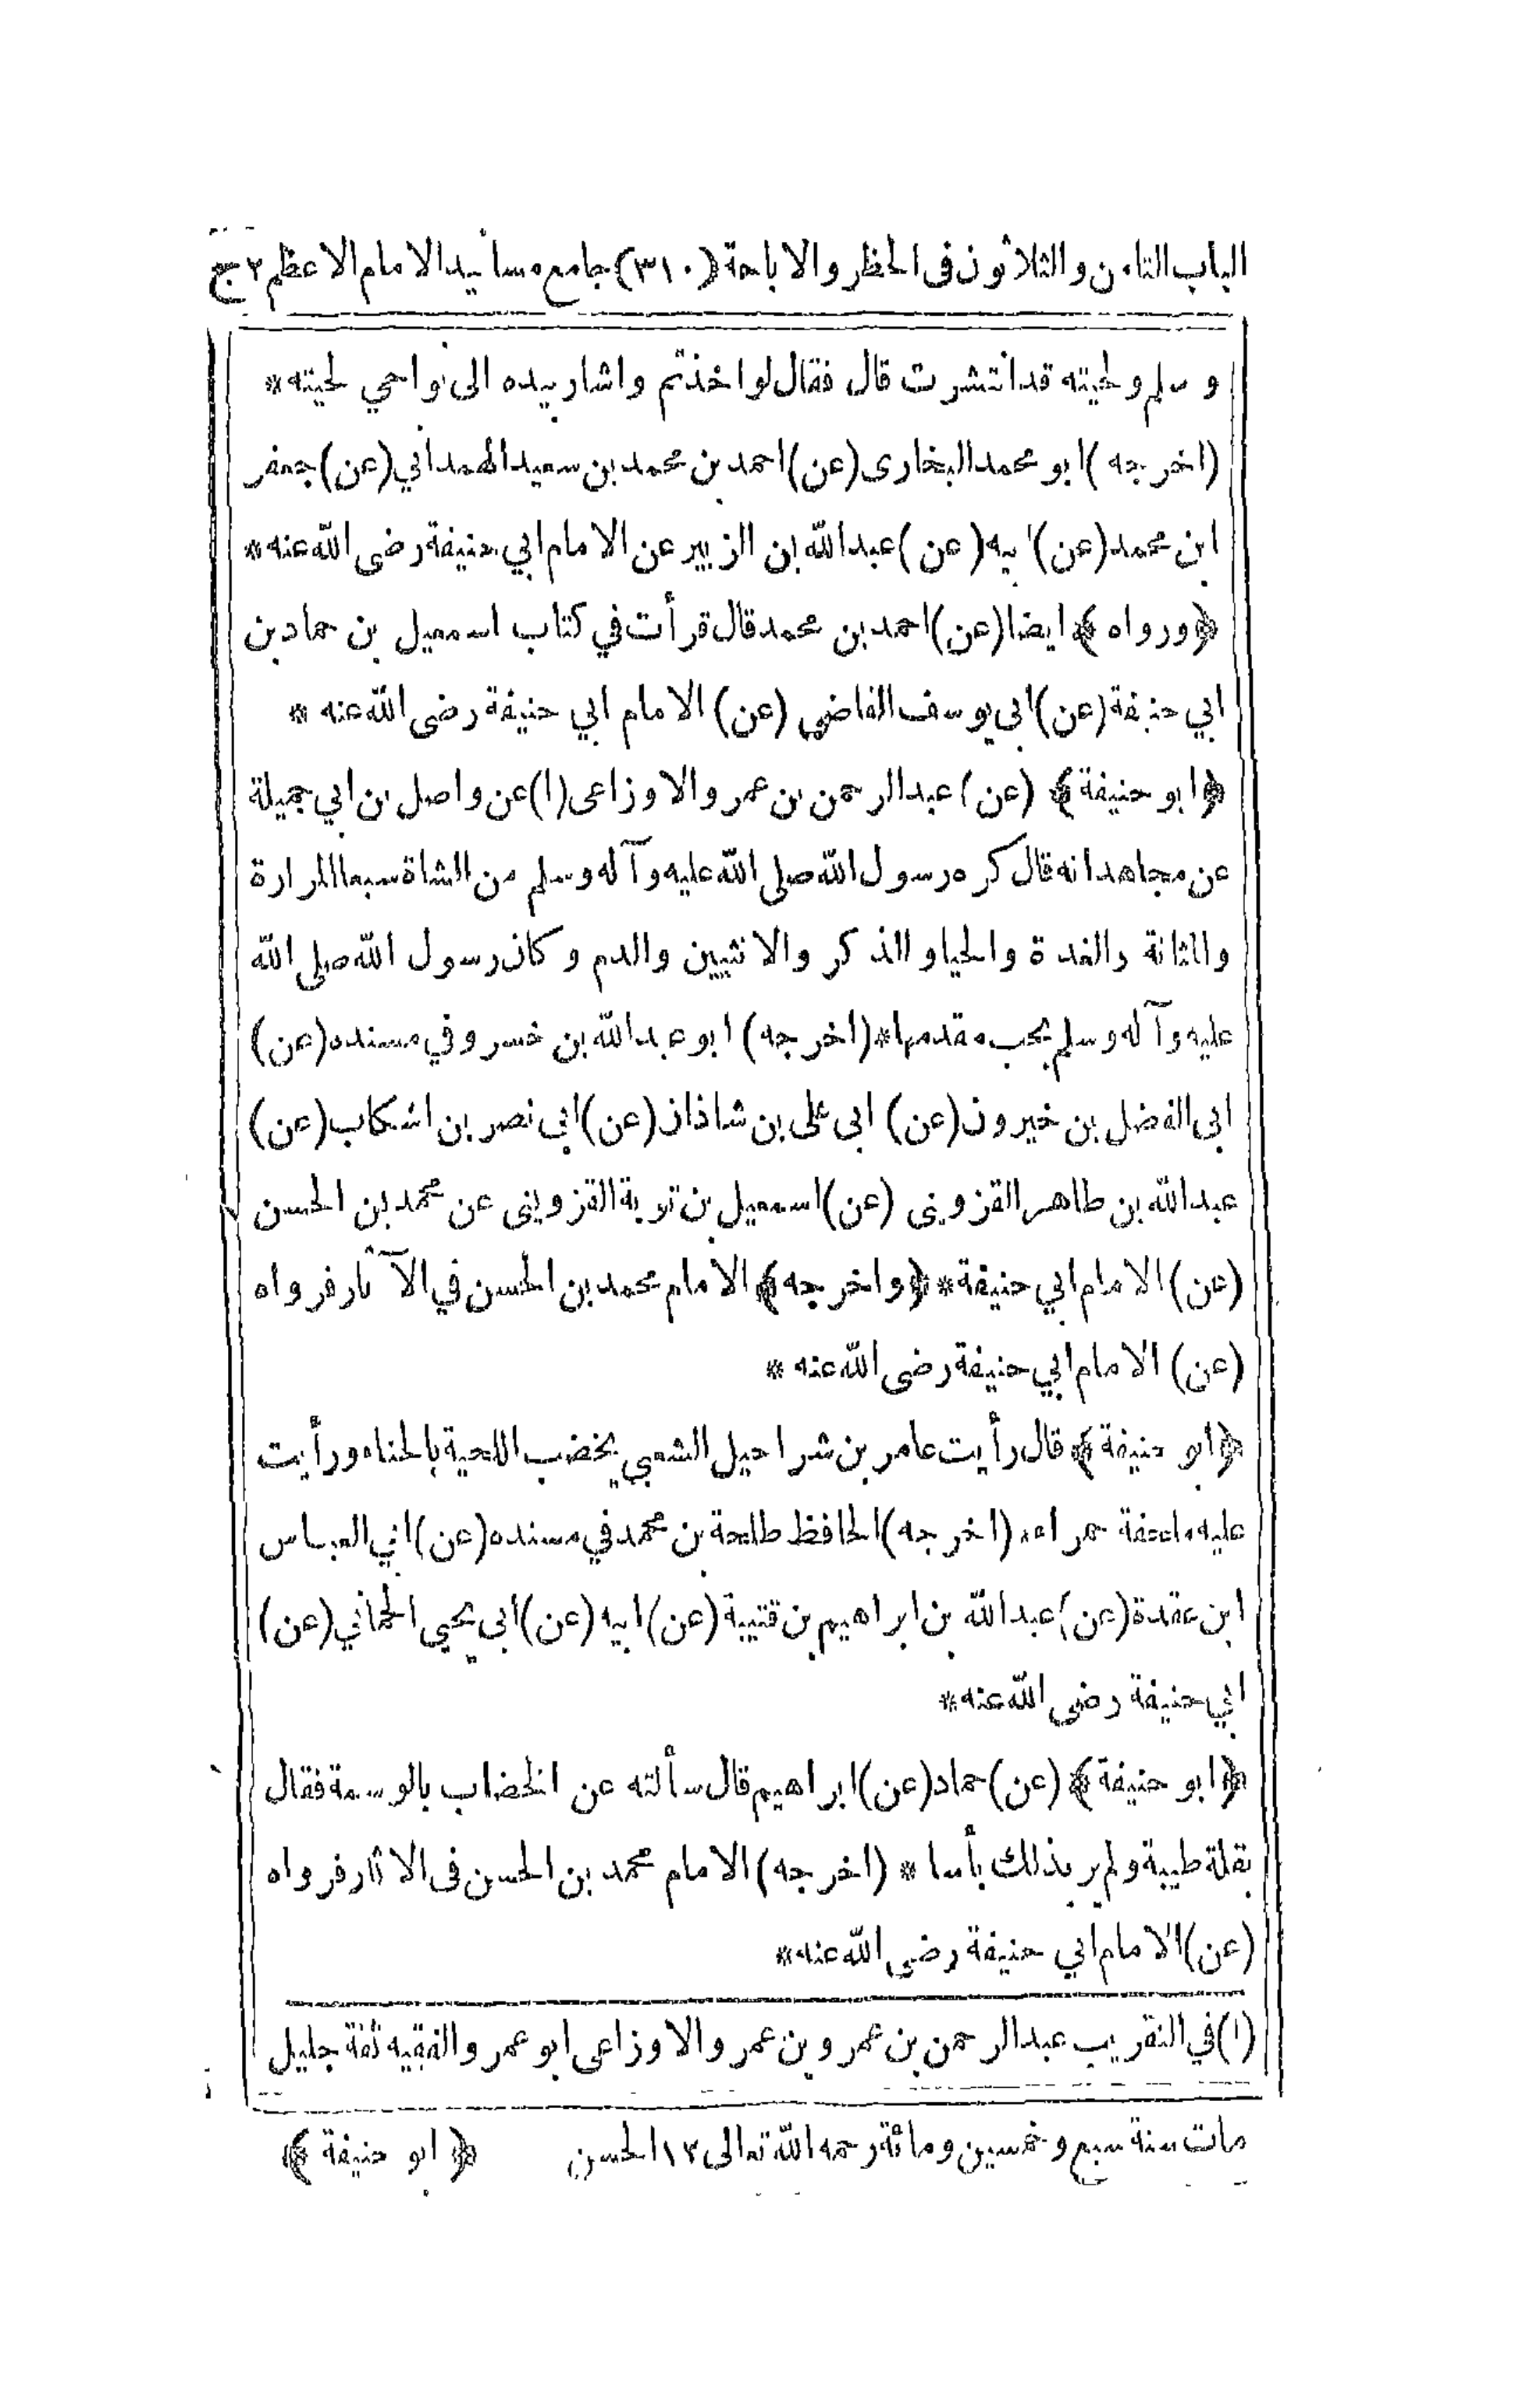 الباب الثامن والثلاثون فى الحظر والاباحة (٣١٠) جامع مسانيد الامام الاعظم ٢ ج
وسلم ولحيته قد انتشرت قال فقال لو اخذتم واشار بيده الى نواحي لحيته *
(اخرجه) ابو محمد البخارى (عن) احمد بن محمد بن سعيد الهمداني (عن) جعفر
ابن محمد (عن) ابيه (عن) عبد الله بن الزبير عن الامام ابي حنيفة رضى الله عنه *
﴿ورواه﴾ ايضا (عن) احمد بن محمد قال قرأت في كتاب اسمعيل بن حماد بن
ابي حنيفة (عن) ابى يوسف القاضى (عن) الامام ابي حنيفة رضى الله عنه *
﴿ابو حنيفة﴾ (عن) عبد الرحمن بن عمر والاوزاعى (١) عن واصل بن ابي جميلة
عن مجاهد انه قال كره رسول الله صلى الله عليه وآله وسلم من الشاة سبعا المرارة
والمثانة والغدة والحيا والذكر والانثيين والدم وكان رسول الله صلى الله
عليه وآله وسلم يحب مقدمها * (اخرجه) ابو عبد الله بن خسرو في مسنده (عن)
ابى الفضل بن خيرون (عن) ابى على بن شاذان (عن) ابي نصر بن اشكاب (عن)
عبد الله بن طاهر القزوينى (عن) اسمعيل بن توبة القزوينى عن محمد بن الحسن
(عن) الامام ابي حنيفة * ﴿واخرجه﴾ الامام محمد بن الحسن في الآثار فرواه
(عن) الامام ابي حنيفة رضى الله عنه *
﴿ابو حنيفة﴾ قال رأيت عامر بن شراحيل الشعبي يخضب اللحية بالحناء ورأيت
عليه ملحفة حمراء * (اخرجه) الحافظ طلحة بن محمد في مسنده (عن) ابي العباس
ابن عقدة (عن) عبد الله بن ابراهيم بن قتيبة (عن) ابيه (عن) ابى يحيى الحماني (عن)
ابي حنيفة رضى الله عنه *
﴿ابو حنيفة﴾ (عن) حماد (عن) ابراهيم قال سألته عن الخضاب بالوسمة فقال
بقلة طيبة ولم ير بذلك بأسا * (اخرجه) الامام محمد بن الحسن فى الاثار فرواه
(عن) الامام ابي حنيفة رضى الله عنه *
(١) في التقريب عبد الرحمن بن عمرو بن عمر والاوزاعى ابو عمر والفقيه ثقة جليل
مات سنة سبع وخمسين ومائة رحمه الله تعالى ١٢ الحسن ﴿ابو حنيفة﴾